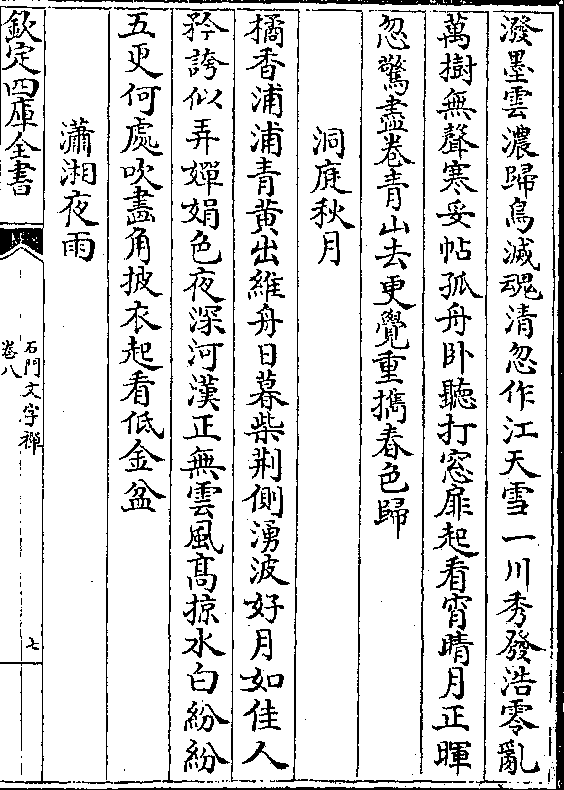 潑墨雲濃歸鳥滅魂清忽作江天雪一川秀發浩零亂
萬樹無聲寒妥帖孤舟卧聽打窓扉起看宵晴月正暉
忽驚盡卷青山去更覺重擕春色歸
洞庭秋月
橘香浦浦青黄出維舟日暮柴荆側湧波好月如佳人
矜誇似弄嬋娟色夜深河漢正無雲風髙掠水白紛紛
五更何處吹畫角披衣起看低金盆
瀟湘夜雨
欽定四庫全書
石門文字禪
卷八
七